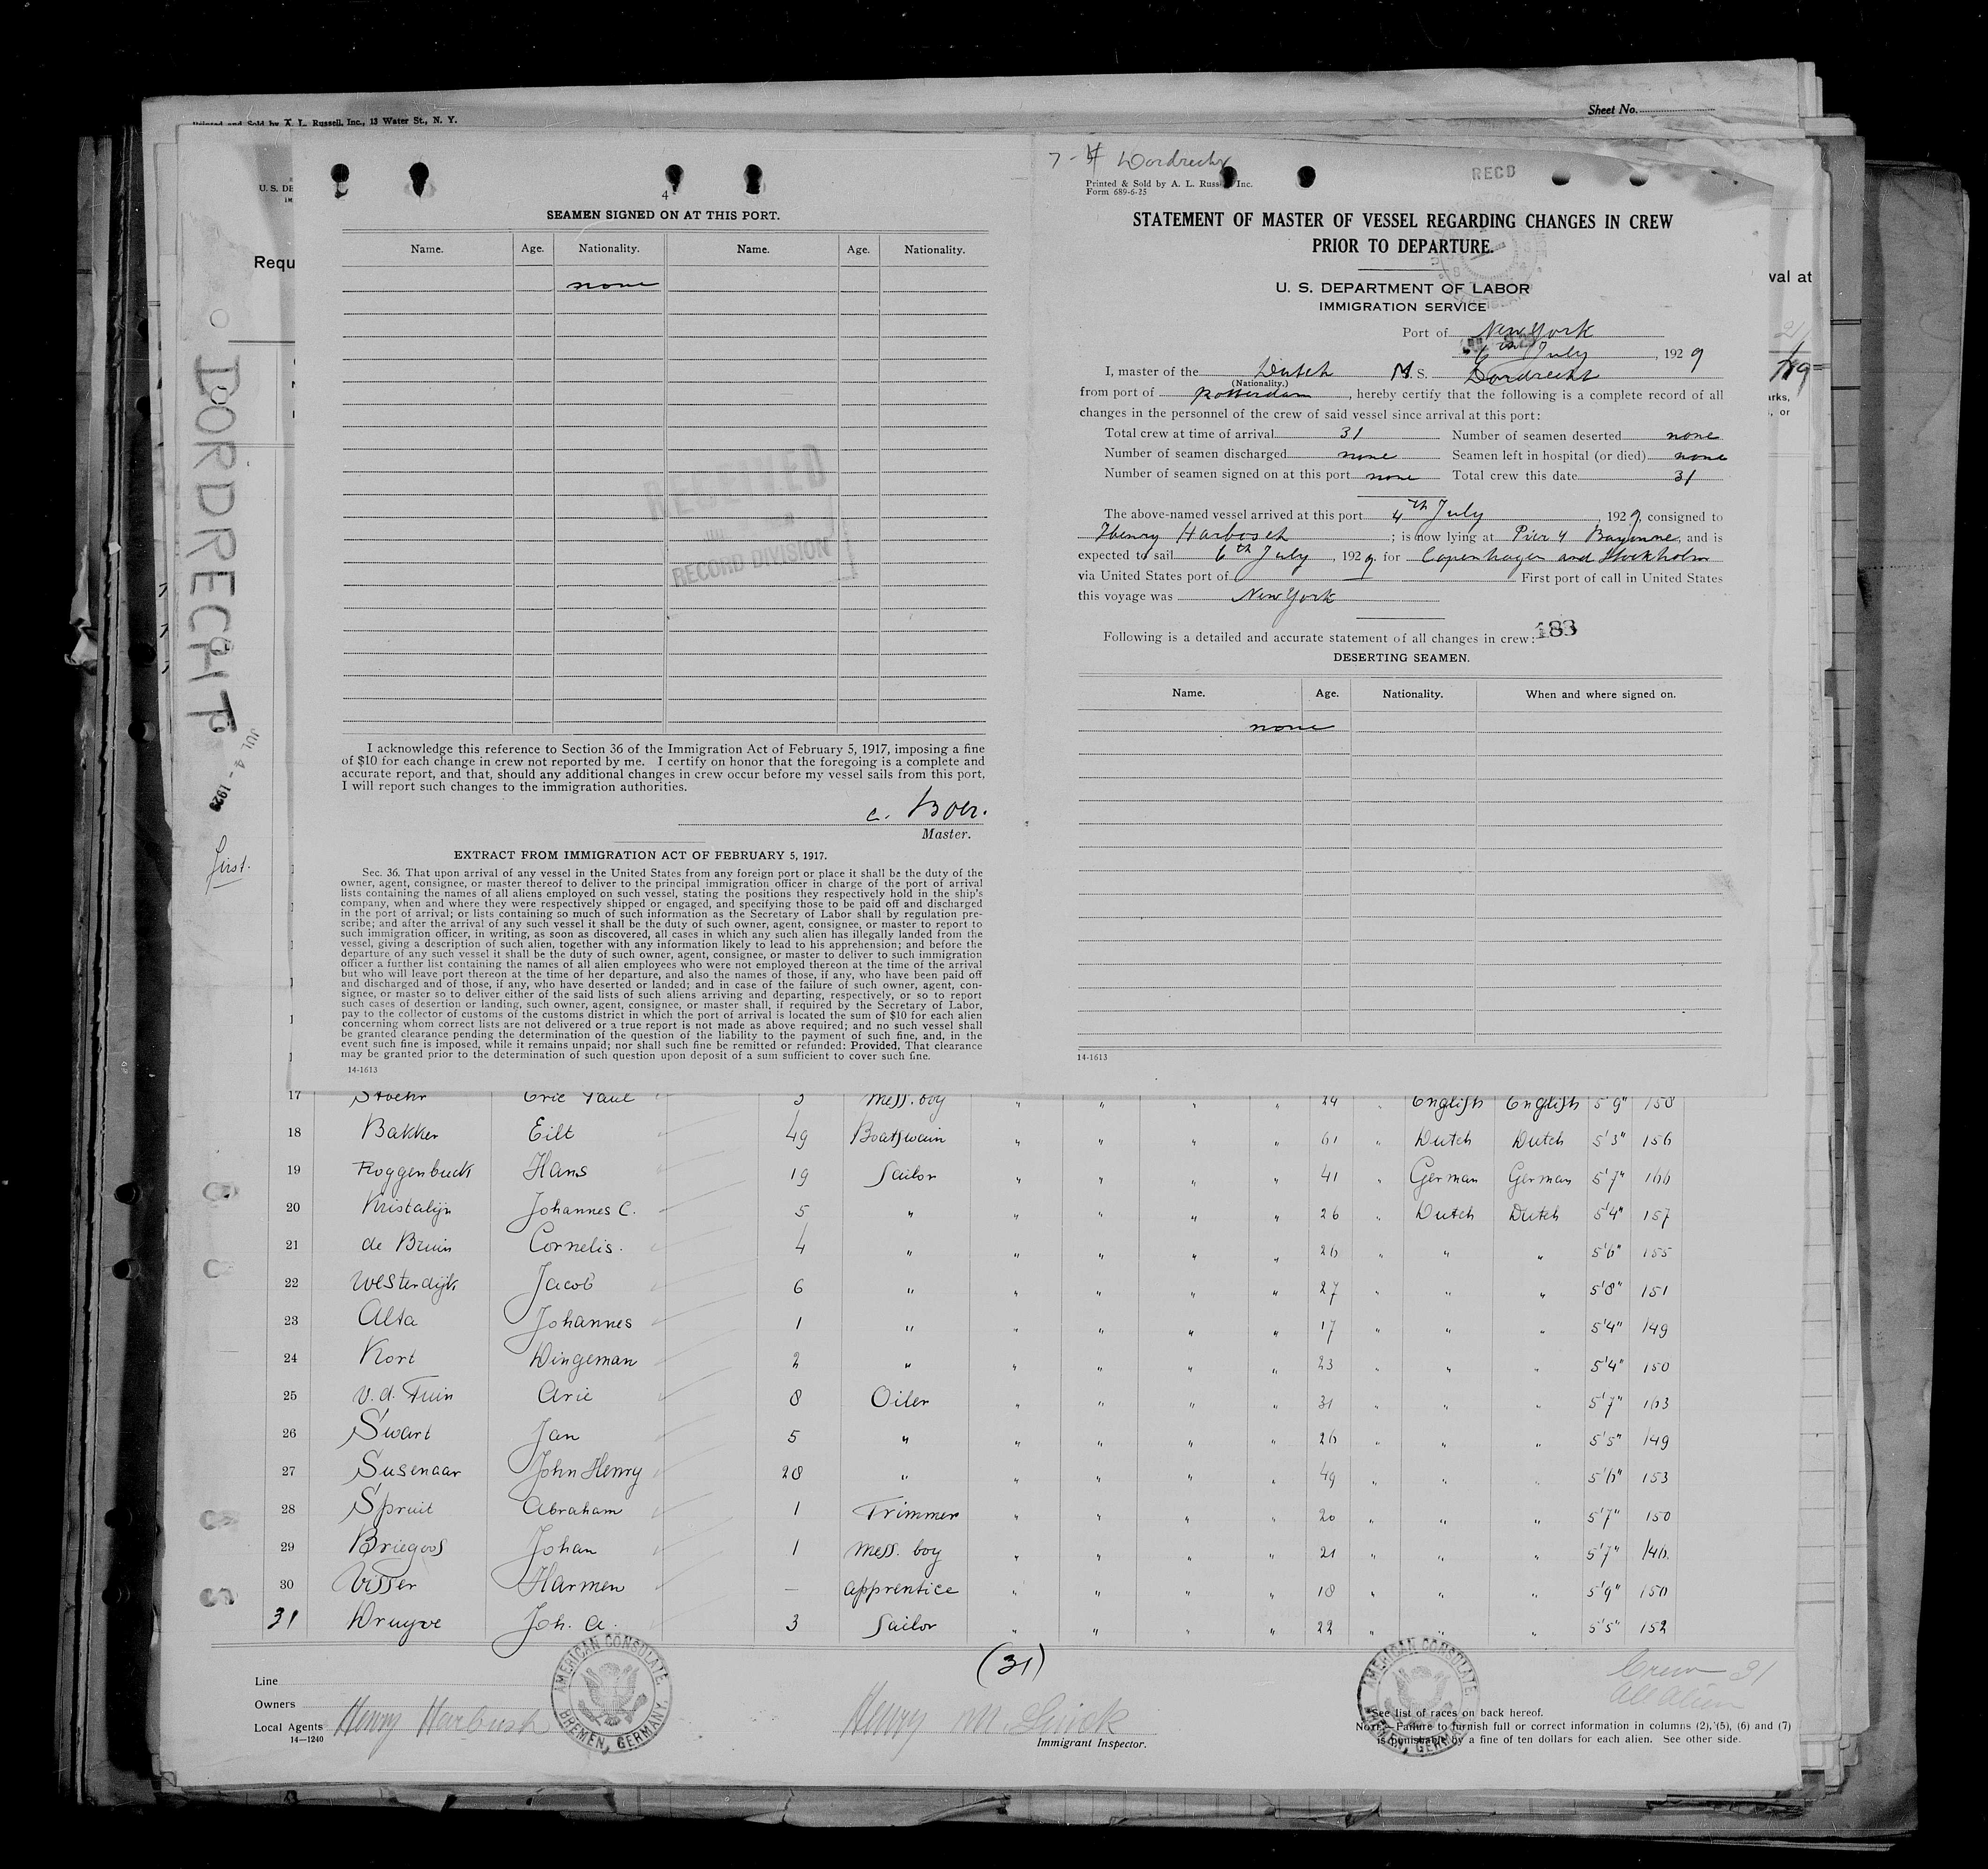 Printed and Sold by A. L. Russell, Inc., 13 Water St., N. Y.
Sheet No.
U. S. DE
Requ
val at
arks,
, or
DORDRECHT
JUL 4 - 1929
first.
4
SEAMEN SIGNED ON AT THIS PORT.
Name. Age. Nationality. Name. Age. Nationality.
none
RECEIVED
RECORD DIVISION
I acknowledge this reference to Section 36 of the Immigration Act of February 5, 1917, imposing a fine
of $10 for each change in crew not reported by me. I certify on honor that the foregoing is a complete and
accurate report, and that, should any additional changes in crew occur before my vessel sails from this port,
I will report such changes to the immigration authorities.
C. Boer.
Master.
EXTRACT FROM IMMIGRATION ACT OF FEBRUARY 5, 1917.
Sec. 36. That upon arrival of any vessel in the United States from any foreign port or place it shall be the duty of the
owner, agent, consignee, or master thereof to deliver to the principal immigration officer in charge of the port of arrival
lists containing the names of all aliens employed on such vessel, stating the positions they respectively hold in the ship's
company, when and where they were respectively shipped or engaged, and specifying those to be paid off and discharged
in the port of arrival; or lists containing so much of such information as the Secretary of Labor shall by regulation pre-
scribe; and after the arrival of any such vessel it shall be the duty of such owner, agent, consignee, or master to report to
such immigration officer, in writing, as soon as discovered, all cases in which any such alien has illegally landed from the
vessel, giving a description of such alien, together with any information likely to lead to his apprehension; and before the
departure of any such vessel it shall be the duty of such owner, agent, consignee, or master to deliver to such immigration
officer a further list containing the names of all alien employees who were not employed thereon at the time of the arrival
but who will leave port thereon at the time of her departure, and also the names of those, if any, who have been paid off
and discharged and of those, if any, who have deserted or landed; and in case of the failure of such owner, agent, con-
signee, or master so to deliver either of the said lists of such aliens arriving and departing, respectively, or so to report
such cases of desertion or landing, such owner, agent, consignee, or master shall, if required by the Secretary of Labor,
pay to the collector of customs of the customs district in which the port of arrival is located the sum of $10 for each alien
concerning whom correct lists are not delivered or a true report is not made as above required; and no such vessel shall
be granted clearance pending the determination of the question of the liability to the payment of such fine, and, in the
event such fine is imposed, while it remains unpaid; nor shall such fine be remitted or refunded: Provided, That clearance
may be granted prior to the determination of such question upon deposit of a sum sufficient to cover such fine.
14-1613
Dordrecht
RECD
Printed & Sold by A. L. Russ Inc.
Form 689-6-25
STATEMENT OF MASTER OF VESSEL REGARDING CHANGES IN CREW
PRIOR TO DEPARTURE.
U. S. DEPARTMENT OF LABOR
IMMIGRATION SERVICE
Port of New York
6th July, 1929
I, master of the Dutch M.S. Dordrecht
(Nationality.)
from port of Rotterdam, hereby certify that the following is a complete record of all
changes in the personnel of the crew of said vessel since arrival at this port:
Total crew at time of arrival 31 Number of seamen deserted none
Number of seamen discharged none Seamen left in hospital (or died) none
Number of seamen signed on at this port none Total crew this date 31
The above-named vessel arrived at this port 4th July, 1929, consigned to
Henry Harbosch; is now lying at Pier 4 Bayonne, and is
expected to sail 6th July, 1929, for Copenhagen and Stockholm
via United States port of First port of call in United States
this voyage was New York
Following is a detailed and accurate statement of all changes in crew: 183
DESERTING SEAMEN.
Name. Age. Nationality. When and where signed on.
none
14-1613
17 Stoehr Eric Paul 3 Mess. boy " " " " 24 " English English 5'9" 158
18 Bakker Eilt 49 Boatswain " " " " 61 " Dutch Dutch 5'3" 156
19 Roggenbuck Hans 19 Sailor " " " " 41 " German German 5'7" 166
20 Kristalijn Johannes C. 5 " " " " " 26 " Dutch Dutch 5'4" 157
21 de Bruin Cornelis. 4 " " " " " 26 " " " 5'6" 155
22 Westerdijk Jacob 6 " " " " " 27 " " " 5'8" 151
23 Alta Johannes 1 " " " " " 17 " " " 5'4" 149
24 Kort Dingeman 2 " " " " " 23 " " " 5'4" 150
25 v.d. Tuin Arie 8 Oiler " " " " 31 " " " 5'7" 163
26 Swart Jan 5 " " " " " 26 " " " 5'5" 149
27 Susenaar John Henry 28 " " " " " 49 " " " 5'6" 153
28 Spruit Abraham 1 Trimmer " " " " 20 " " " 5'7" 150
29 Briegoos Johan 1 Mess. boy " " " " 21 " " " 5'7" 146.
30 Visser Harmen — apprentice " " " " 18 " " " 5'9" 150
31 Druyve Joh. A. 3 Sailor " " " " 22 " " " 5'5" 152
(31)
AMERICAN CONSULATE, BREMEN, GERMANY.
AMERICAN CONSULATE, BREMEN, GERMANY.
Crew 31
All alien
Line
Owners
Local Agents Henry Harbush
14—1240
Henry M.
Immigrant Inspector.
See list of races on back hereof.
Note—Failure to furnish full or correct information in columns (2), (5), (6) and (7)
is punishable by a fine of ten dollars for each alien. See other side.